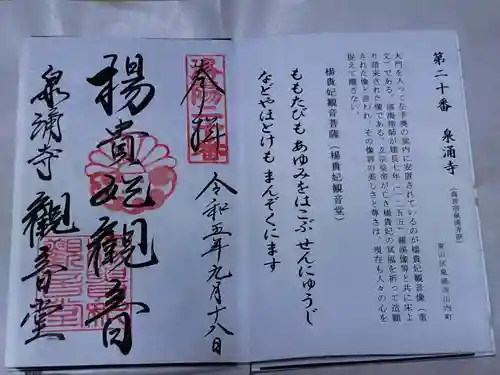 第二十番 泉涌寺
(真言宗泉涌寺派)
東山区泉涌寺山内町
大門を入って左手奥の堂内に安置されているのが楊貴妃観音像(重
文)である。湛海律師が建長七年(一二五五)羅漢像等と共に宋よ
り請来された像である。玄宗皇帝が亡き楊貴妃の冥福を祈って造顕
された像と言われ、その像容の美しさと尊さは、現在も人々の心を
捉えて離さない。
楊貴妃観音菩薩(楊貴妃観音堂)
ももたびも あゆみをはこぶ せんにゅうじ
などやほとけも まんぞくにます
奉拝
令和五年九月十八日
楊貴妃觀音
泉涌寺 觀音堂